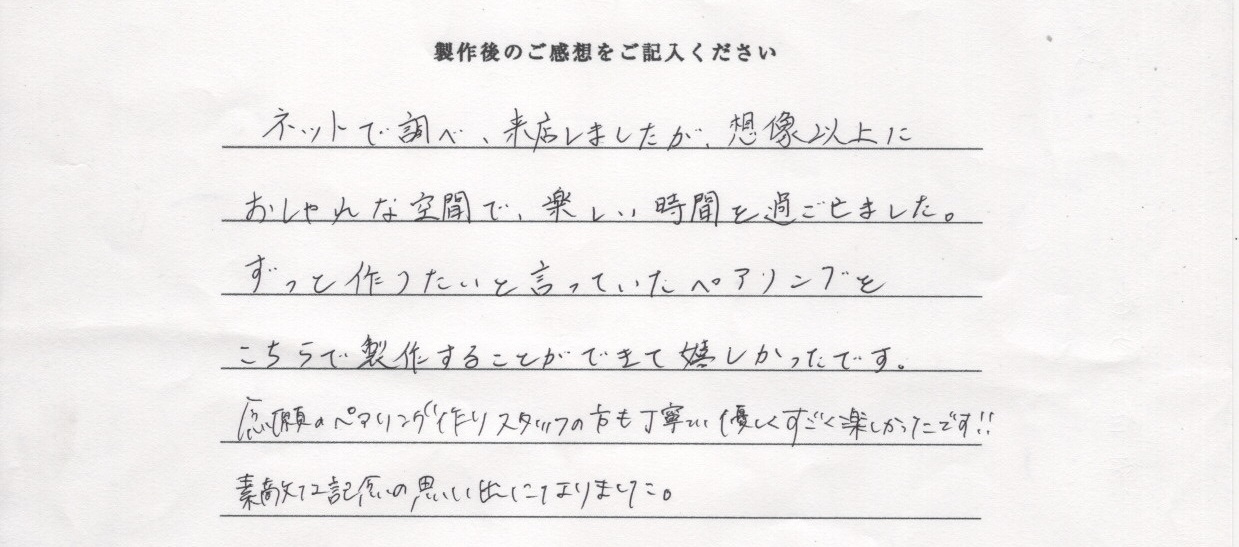 製作後のご感想をご記入ください
ネットで調べ、来店しましたが、想像以上に
おしゃれな空間で、楽しい時間を過ごせました。
ずっと作りたいと言っていたペアリングを
こちらで製作することができて嬉しかったです。
念願のペアリング作りスタッフの方も丁寧で優しくすごく楽しかったです!!
素敵な記念の思い出になりました。